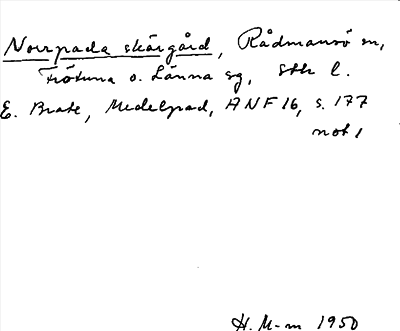 Norrpada skärgård, Rådmansö sn,
Frötuna o. Länna sg, Sthr l.
E. Brate, Medelpad, ANF 16, s. 177
not 1
H. M-m 1950